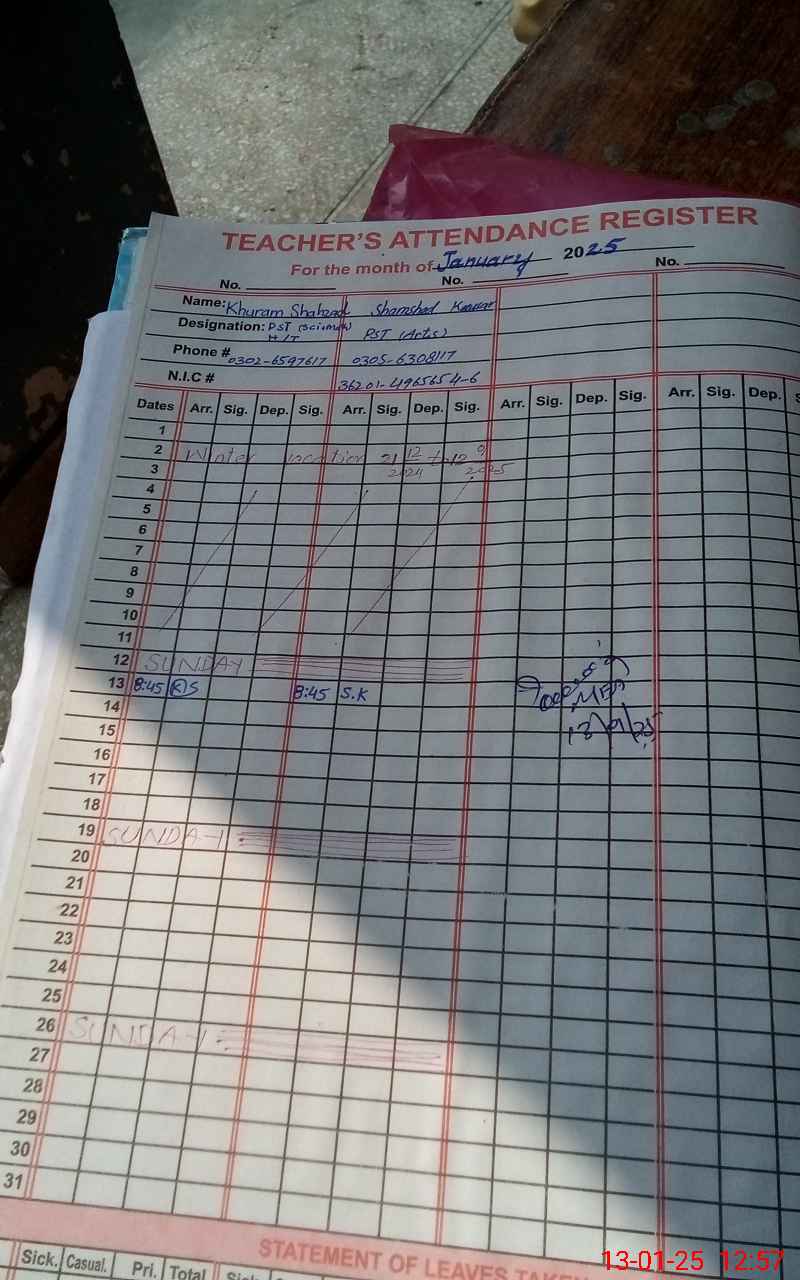 TEACHER'S ATTENDANCE REGISTER
For the month of January 2025
No. No. No.
Name: Khuram Shahzad Shamshad Kausar
Designation: PST (Science) PST (Arts)
H/T
Phone # 0302-6597617 0305-6308117
N.I.C # 36201-4965654-6
Dates Arr. Sig. Dep. Sig. Arr. Sig. Dep. Sig. Arr. Sig. Dep. Sig. Arr. Sig. Dep. S
1
2 Winter vacation 21 12 to 12
3 2024 2025
4
5
6
7
8
9
10
11
12 SUNDAY
13 8:45 KS 8:45 S.K
MEA
14
15
16
17
18
19 SUNDAY
20
21
22
23
24
25
26 SUNDAY
27
28
29
30
31
STATEMENT OF LEAVES TAKEN
Sick. Casual. Pri. Total Sick
13-01-25 12:57